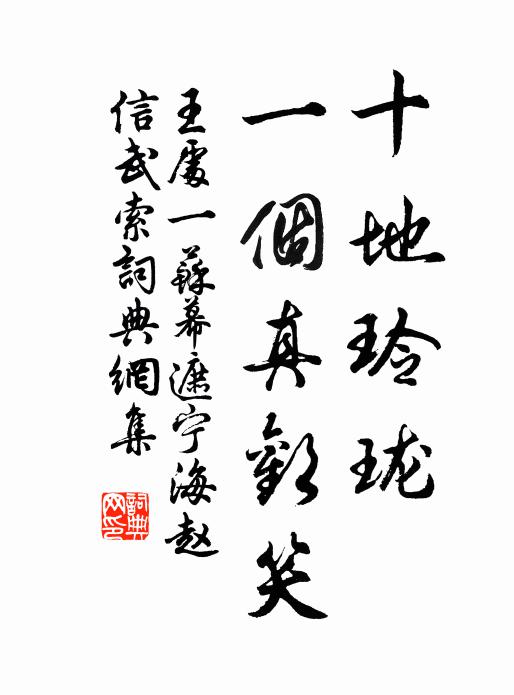 十地玲珑
一個真歡笑
王處一蘇幕遮宁海赵
信武索詞典網集
詞典
网印